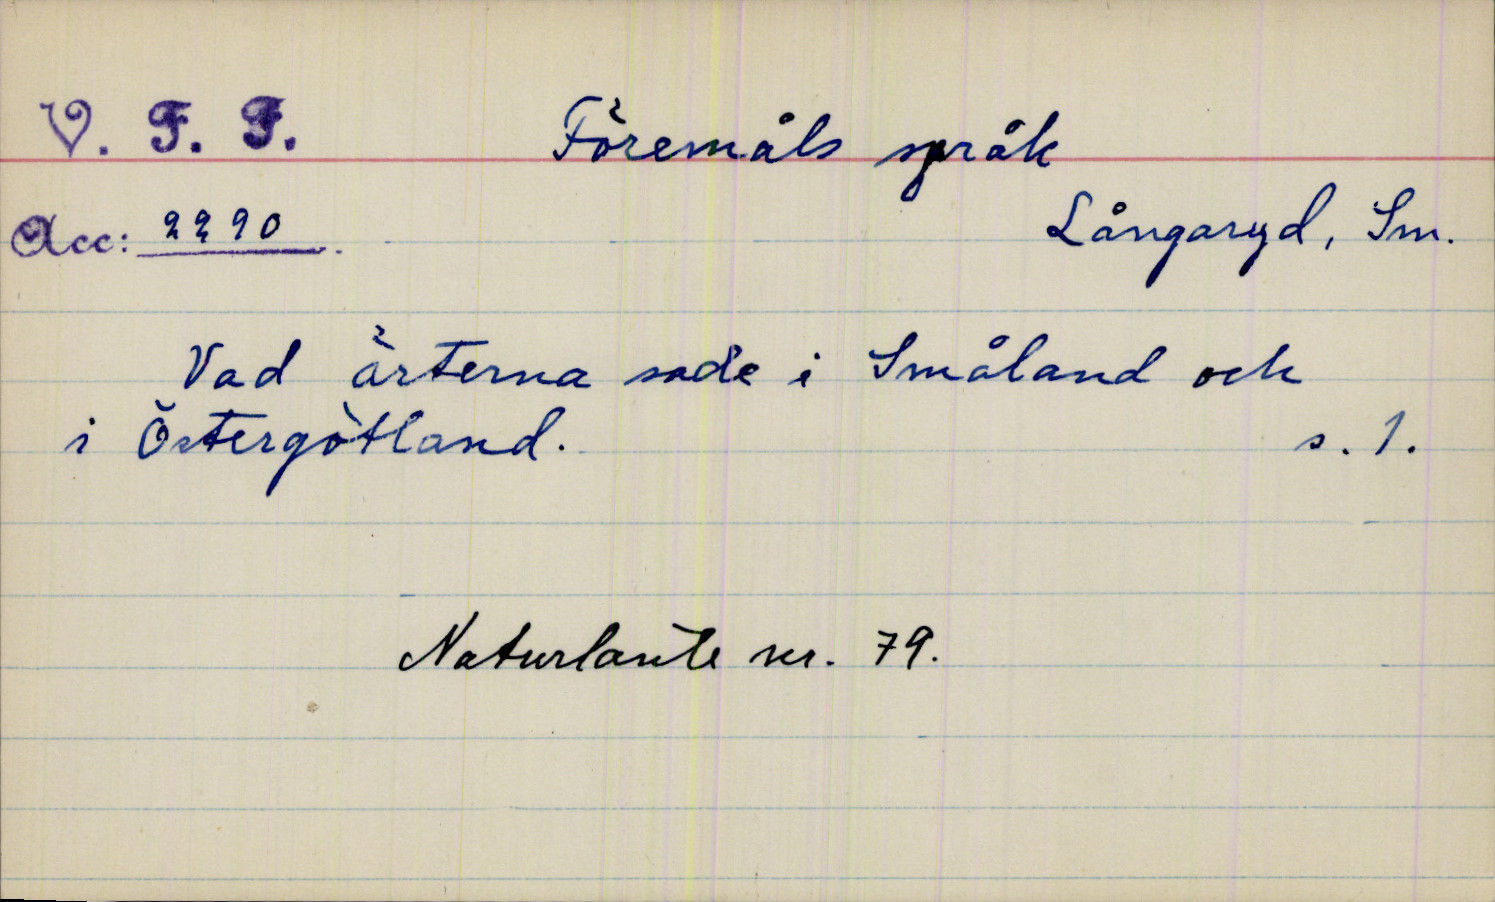 V. F. F. Föremåls språk
Acc: 2290 Långaryd, Sm.
Vad ärterna sade i Småland och
i Östergötland. s. 1.
Naturlante nr. 79.